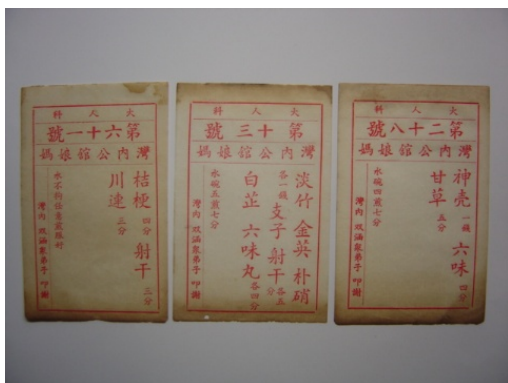 大人科
第六十一號
灣內公館娘媽
桔梗 四分 射干 三分
川連 三分
灣內 双涵眾弟子 叩謝
大人科
第十三號
灣內公館娘媽
淡竹 金英 朴硝
各一錢 支子 射干 各五分
白芷 六味丸 各四分
水碗五煎七分
灣內 双涵眾弟子 叩謝
大人科
第二十八號
灣內公館娘媽
神壳 一錢 六味 四分
甘草 五分
水碗四煎七分
灣內 双涵眾弟子 叩謝